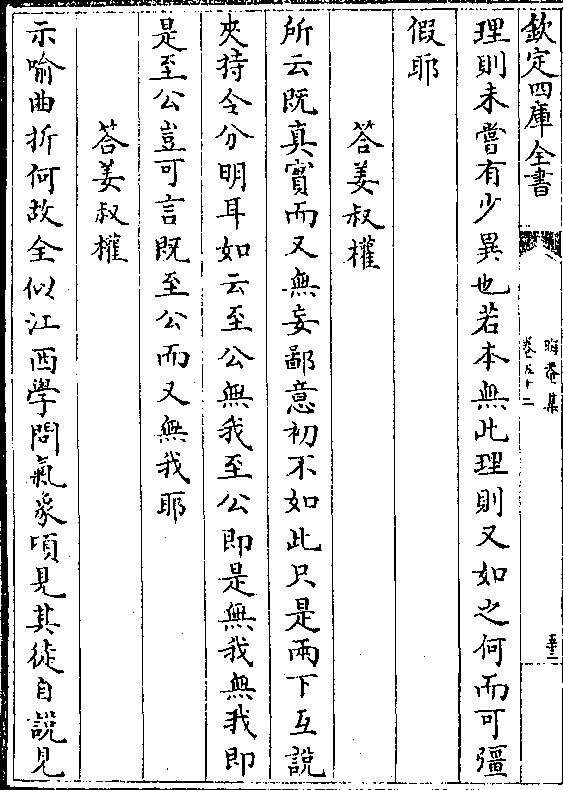 欽定四庫全書
晦菴集
卷五十二
至二
理則未嘗有少異也若本無此理則又如之何而可彊
假耶
答姜叔權
所云既真實而又無妄鄙意初不如此只是兩下互說
夾持令分明耳如云至公無我至公即是無我無我即
是至公豈可言既至公而又無我耶
答姜叔權
示喻曲折何故全似江西學問氣象頃見其徒自說見